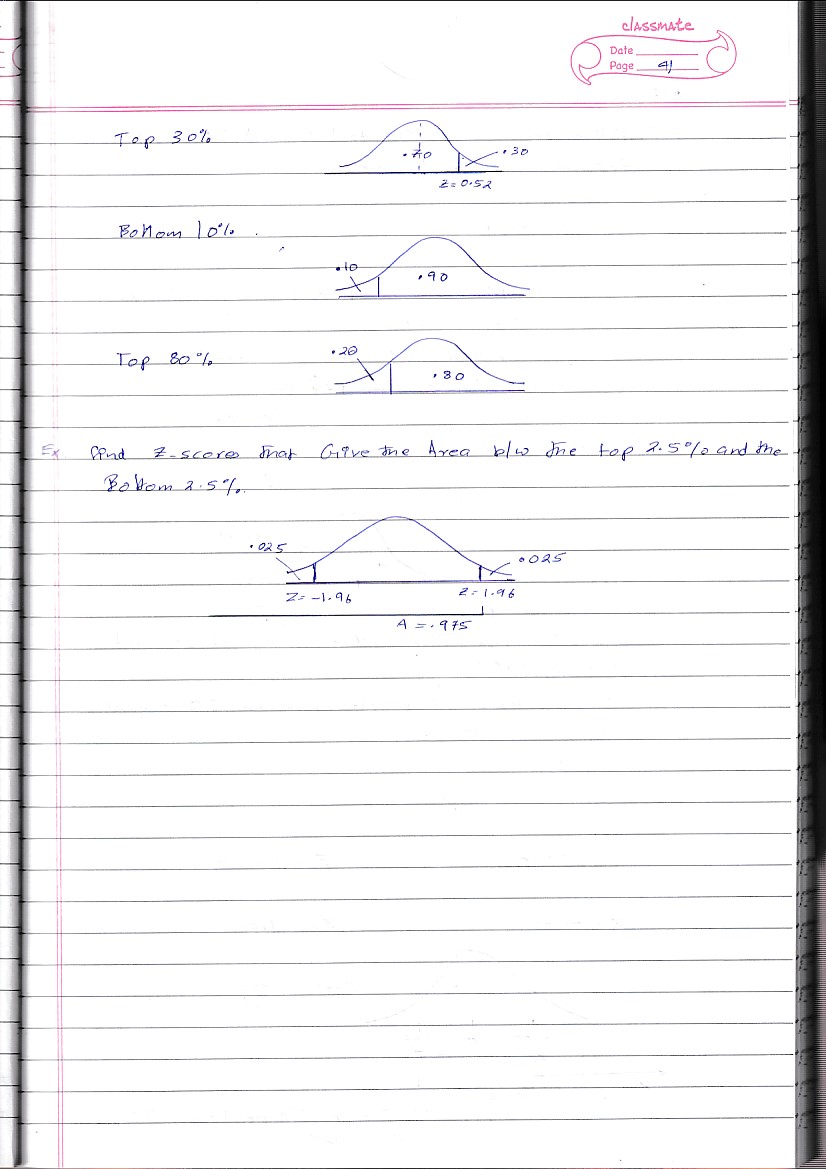 classmate
Date
Page 41
Top 30%
.70
.30
Z=0.52
Bottom 10%.
.10
.90
Top 80%
.20
.80
Ex find Z-scores that Give the Area b/w the top 2.5% and the
Bottom 2.5%.
.025
.025
Z=-1.96
Z=1.96
A = .975